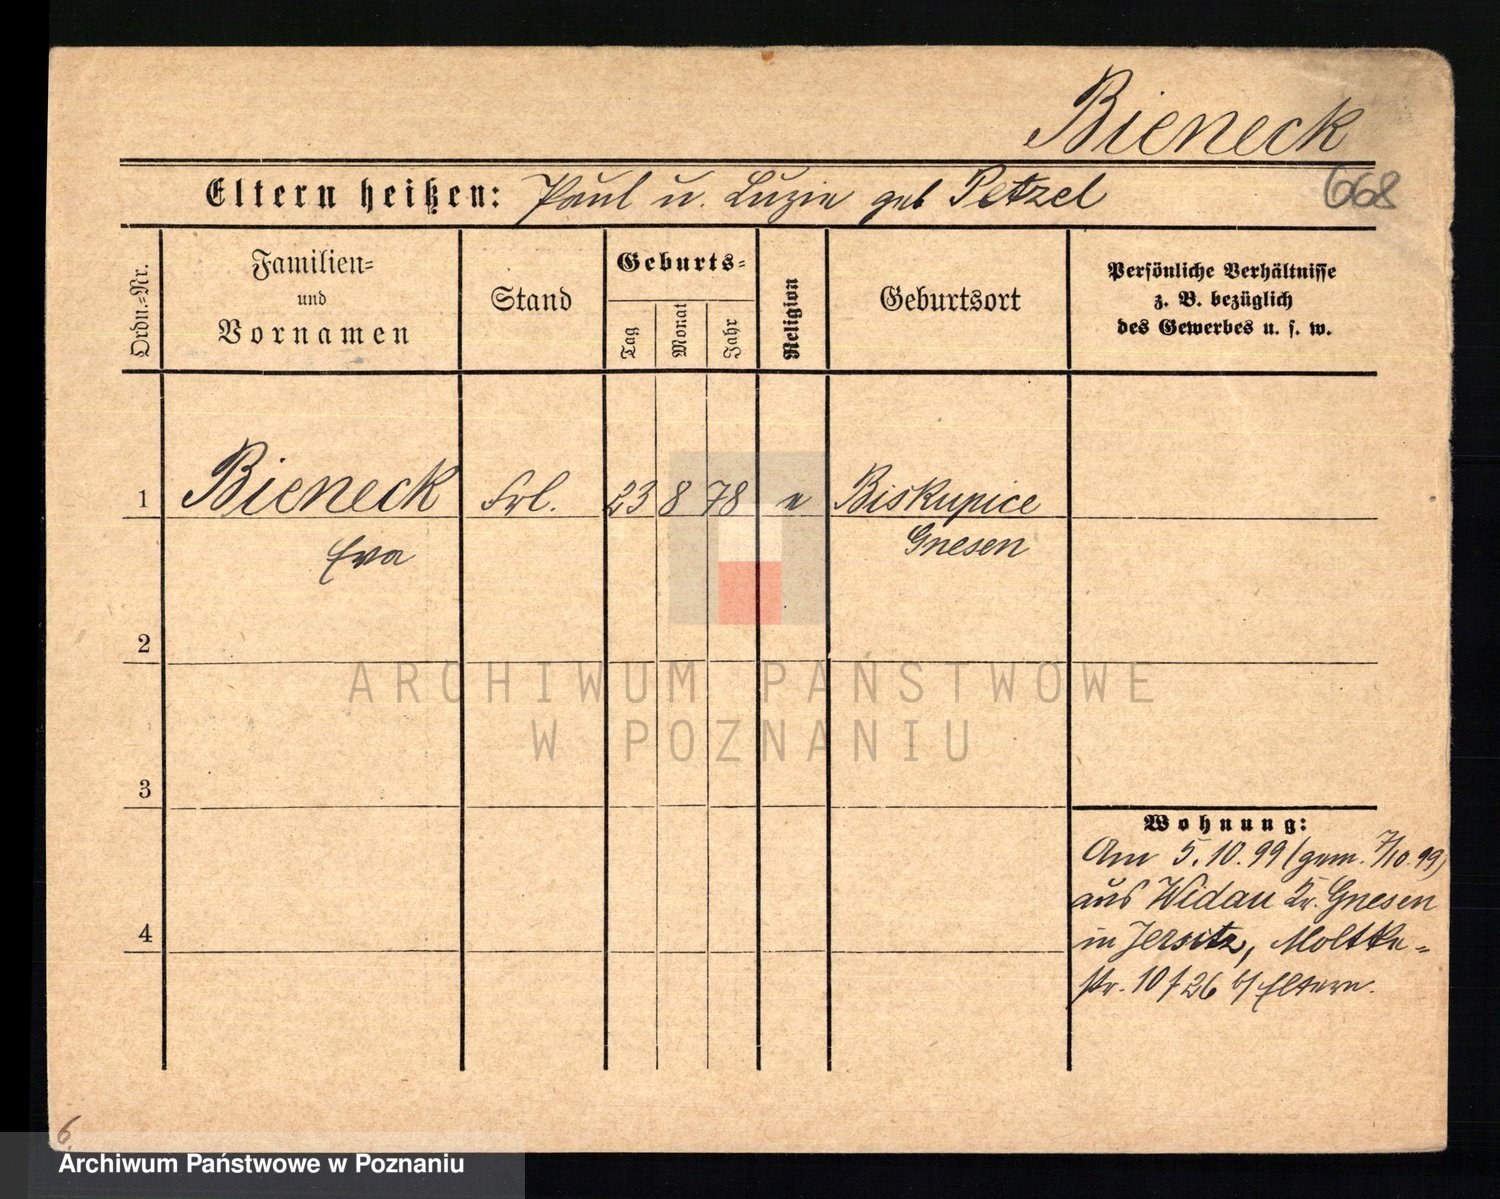 Bieneck
Eltern heißen: Paul u. Luzie geb Petzel
668
Ordn.=Nr.
Familien=
und
Vornamen
Stand
Geburts=
Tag
Monat
Jahr
Religion
Geburtsort
Persönliche Verhältnisse
z. B. bezüglich
des Gewerbes u. s. w.
1 Bieneck Frl. 23 8 78 Biskupice
Eva Gnesen
2
3
4
Wohnung:
Am 5.10.99 (gem. 7/10.99)
aus Widau Kr. Gnesen
in Jersitz, Moltke=
str. 10 b/ Eltern.
ARCHIWUM PAŃSTWOWE
W POZNANIU
6.
Archiwum Państwowe w Poznaniu